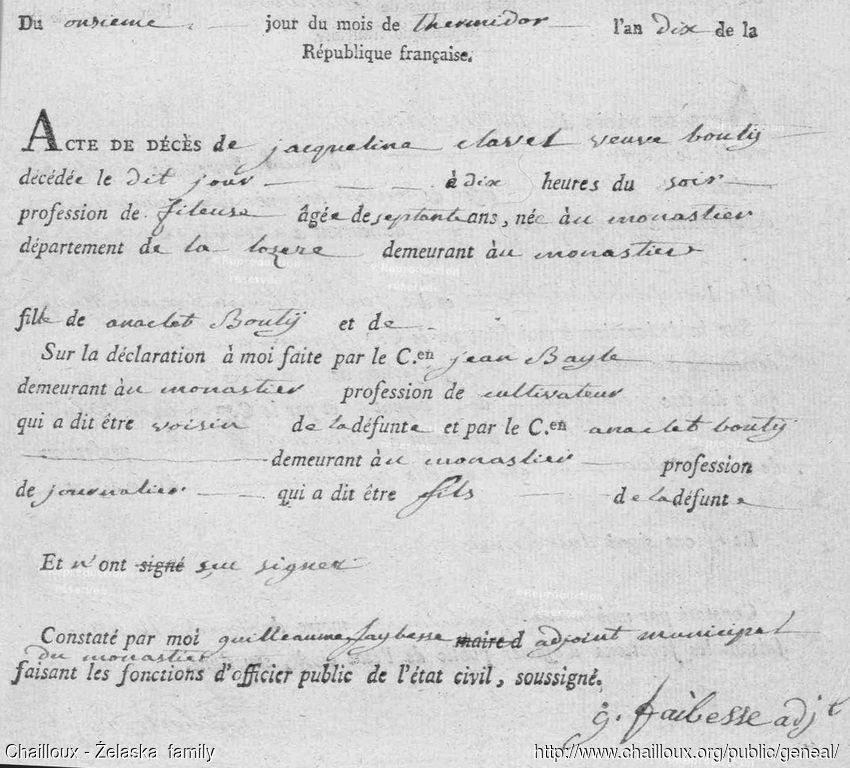 Du onsieme jour du mois de thermidor l'an dix de la
République française.
ACTE DE DÉCÈS de jacquelina clavel veuve boutÿ
décédée le dit jour à dix heures du soir
profession de fileuse âgée de septante ans, née àu monastier
département de la lozere demeurant àu monastier
fille de anaclet Boutÿ et de
Sur la déclaration à moi faite par le C.en jean Bayle
demeurant àu monastier profession de cultivateur
qui a dit être voisin de la défunte et par le C.en anaclet boutÿ
demeurant àu monastier profession
de journalier qui a dit être fils de la défunte
Et n'ont signé sçu signer
Constaté par moi guilleaume faybesse maire d adjoint municipal
du monastier
faisant les fonctions d'officier public de l'état civil, soussigné.
g. faibesse adjt
Chailloux - Żelaska family
http://www.chailloux.org/public/geneal/